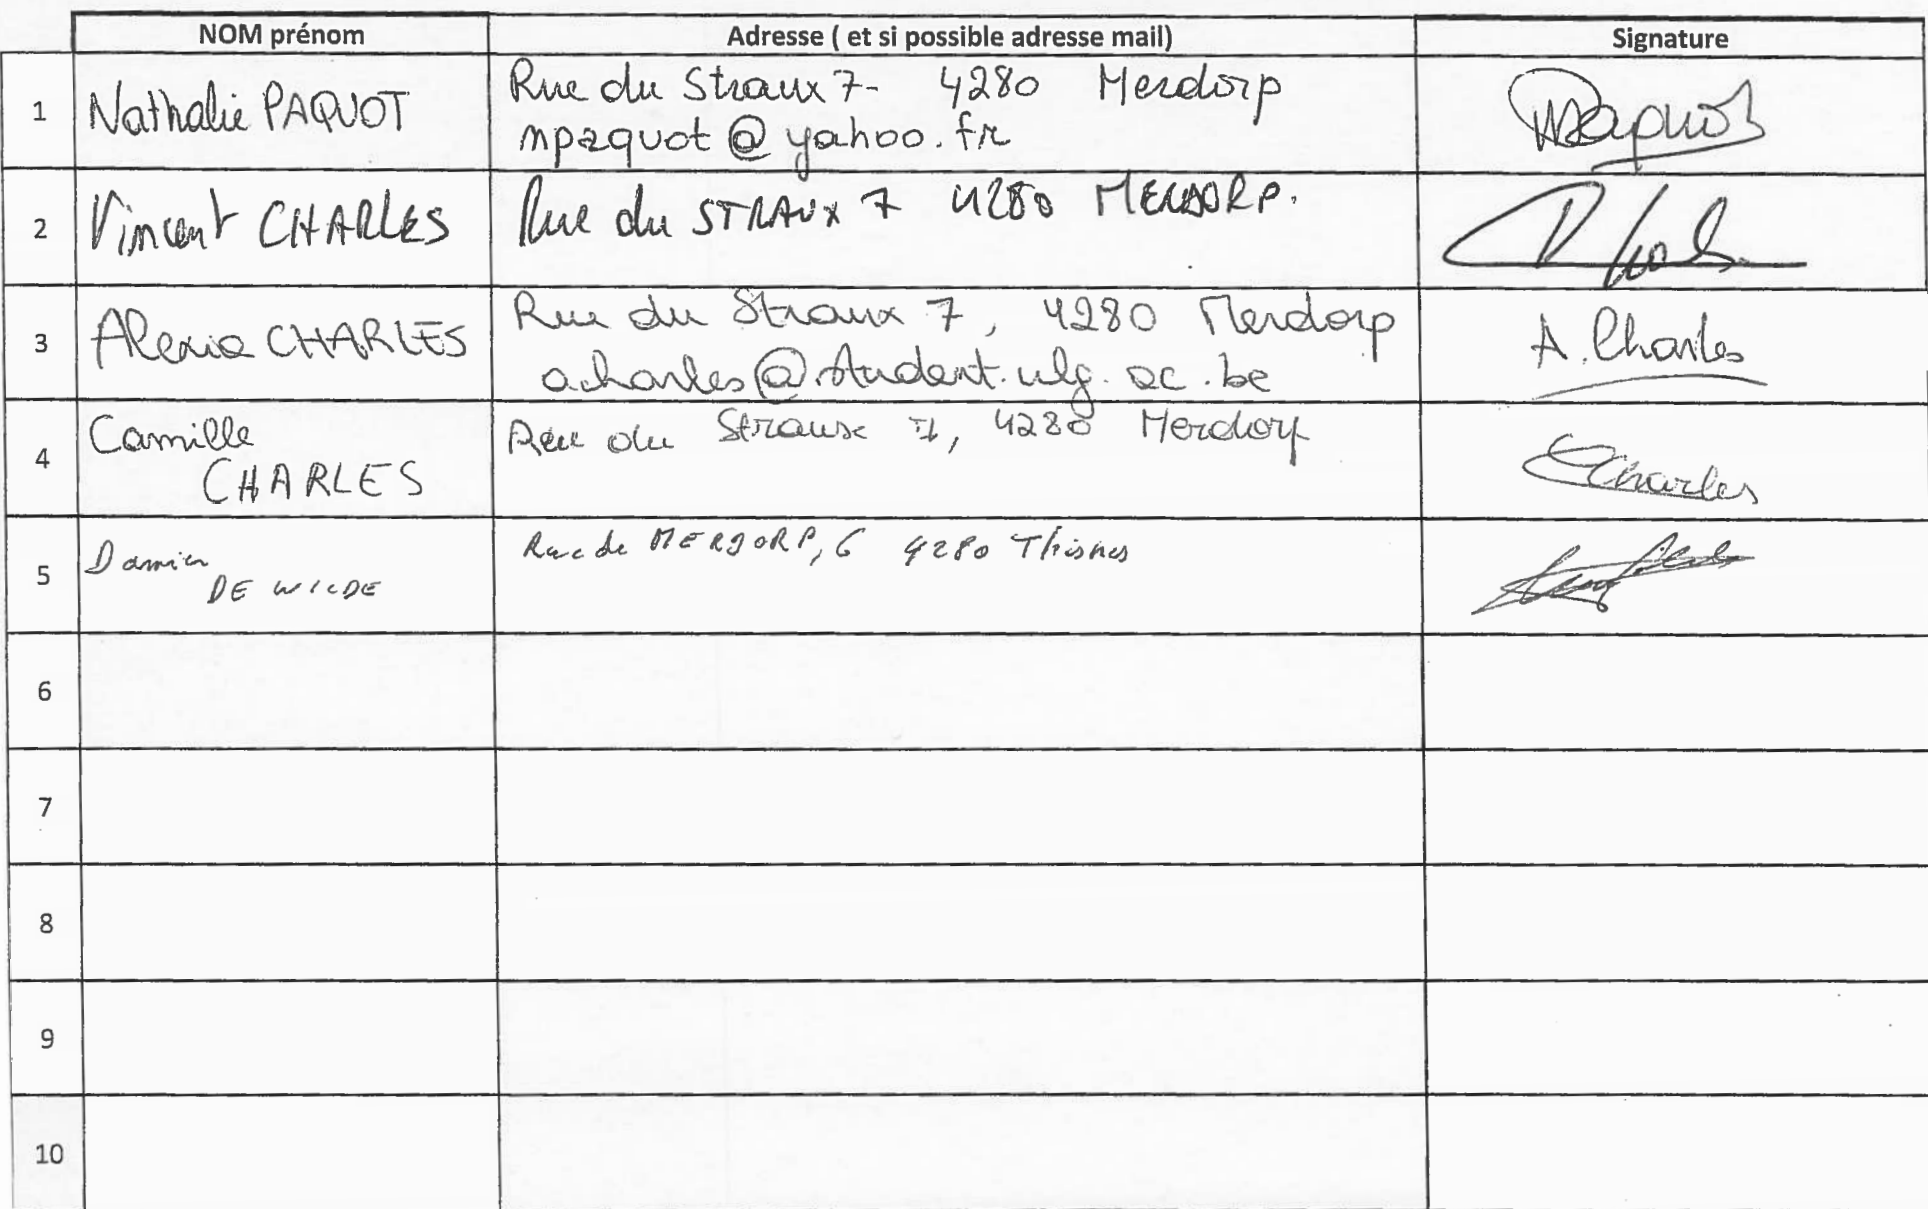 NOM prénom Adresse ( et si possible adresse mail) Signature
1 Nathalie PAQUOT Rue du Straux 7- 4280 Merdorp
npaquot@yahoo.fr
2 Vincent CHARLES Rue du STRAUX 7 4280 MERDORP.
3 Alexia CHARLES Rue du Straux 7, 4280 Merdorp A.Charles
acharles@student.ulg.ac.be
4 Camille Rue du Straux 7, 4280 Merdorp
CHARLES CCharles
5 Damien Rue de MERDORP, 6 4280 Thisnes
DE WILDE
6
7
8
9
10